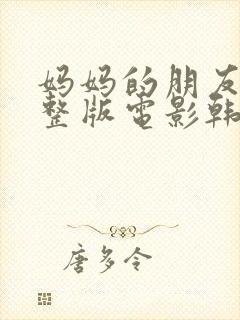 妈妈的朋友
整版电影韩
唐多令